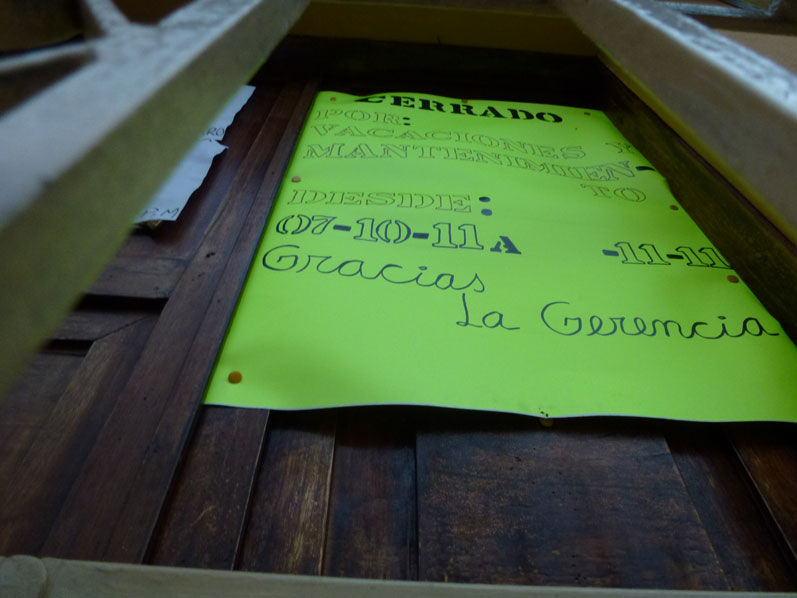 CERRADO
POR:
VACACIONES Y
MANTENIMIEN-
TO
DESIDE:
07-10-11 A -11-11
Gracias
La Gerencia
P.M